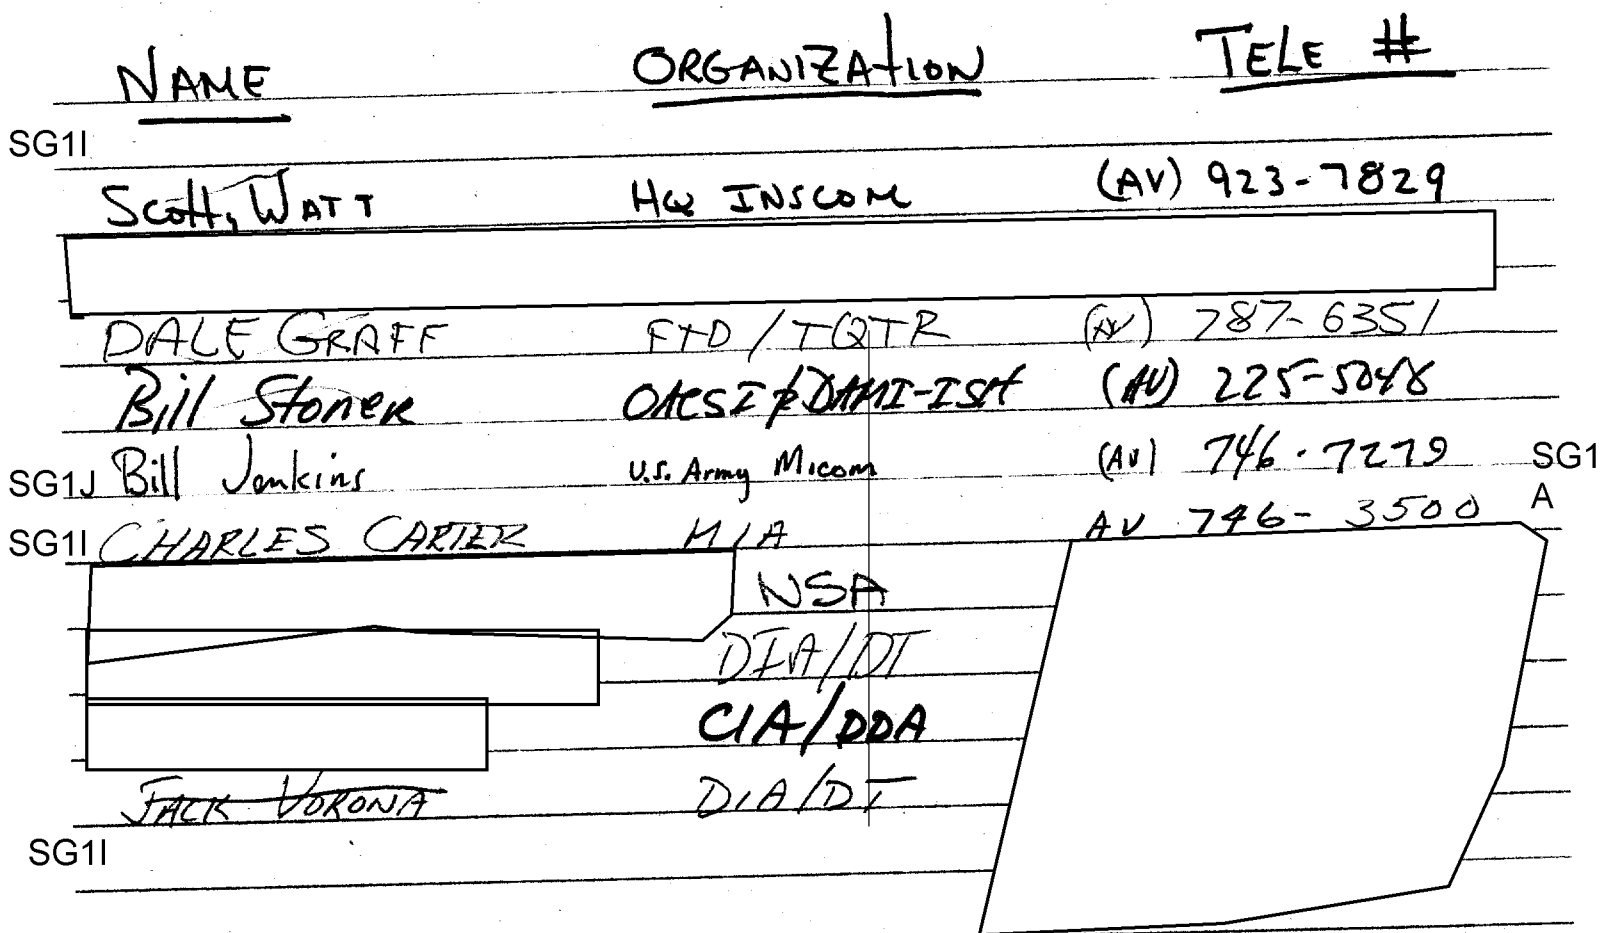 NAME ORGANIZATION TELE #
SG1I
Scott, WATT HQ INSCOM (AV) 923-7829
DALE GRAFF FTD/TQTR (AV) 787-6351
Bill Stoner OACSI/DAMI-ISH (AV) 225-5048
SG1J Bill Jenkins U.S. Army Micom (AV) 746-7279 SG1
A
SG1I CHARLES CARTER MIA AV 746-3500
NSA
DIA/DT
CIA/DDA
JACK VORONA DIA/DT
SG1I